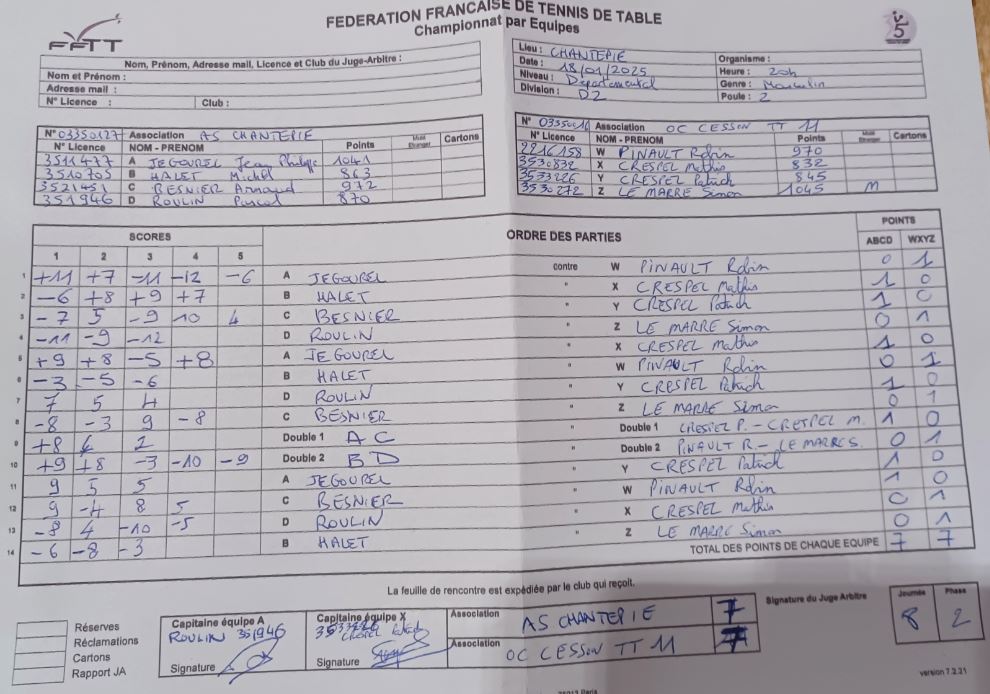 FEDERATION FRANCAISE DE TENNIS DE TABLE
Championnat par Equipes
FFTT
Nom, Prénom, Adresse mail, Licence et Club du Juge-Arbitre :
Nom et Prénom :
Adresse mail :
N° Licence : Club :
Lieu : CHANTEPIE Organisme :
Date : 18/01/2025 Heure : 20h
Niveau : Départemental Genre : Masculin
Division : D2 Poule : 2
N° 03350127 Association AS CHANTEPIE
N° Licence NOM - PRENOM Points Cartons
3511477 A JEGOUREL Jean Philippe 1041
3510705 B HALET Michel 863
3521451 C BESNIER Arnaud 972
351946 D ROULIN Pascal 870
N° Association OC CESSON TT 11
N° Licence NOM - PRENOM Points Cartons
2216158 W PINAULT Robin 970
3530832 X CRESPEL Mathis 832
3533226 Y CRESPEL Patrick 845
3530272 Z LE MARRE Simon 1045 M
SCORES ORDRE DES PARTIES POINTS
1 2 3 4 5 ABCD WXYZ
1 +11 +7 -11 -12 -6 A JEGOUREL contre W PINAULT Robin 0 1
2 -6 +8 +9 +7 B HALET " X CRESPEL Mathis 1 0
3 -7 5 -9 10 4 C BESNIER " Y CRESPEL Patrick 1 0
4 -11 -9 -12 D ROULIN " Z LE MARRE Simon 0 1
5 +9 +8 -5 +8 A JEGOUREL " X CRESPEL Mathis 1 0
6 -3 -5 -6 B HALET " W PINAULT Robin 0 1
7 7 5 4 D ROULIN " Y CRESPEL Patrick 1 0
8 -8 -3 9 -8 C BESNIER " Z LE MARRE Simon 0 1
9 +8 6 2 Double 1 AC " Double 1 CRESPEL P. - CRESPEL M. 1 0
10 +9 +8 -3 -10 -9 Double 2 BD " Double 2 PINAULT R - LE MARRE S. 0 1
11 9 5 5 A JEGOUREL " Y CRESPEL Patrick 1 0
12 9 -4 8 5 C BESNIER " W PINAULT Robin 1 0
13 -8 4 -10 -5 D ROULIN " X CRESPEL Mathis 0 1
14 -6 -8 -3 B HALET " Z LE MARRE Simon 0 1
TOTAL DES POINTS DE CHAQUE EQUIPE 7 7
La feuille de rencontre est expédiée par le club qui reçoit.
Réserves
Réclamations
Cartons
Rapport JA
Capitaine équipe A
ROULIN 351946
Signature
Capitaine équipe X
Signature
Association AS CHANTEPIE 7
Association OC CESSON TT 11 7
Signature du Juge Arbitre
Journée Phase
8 2
version 7.2.21